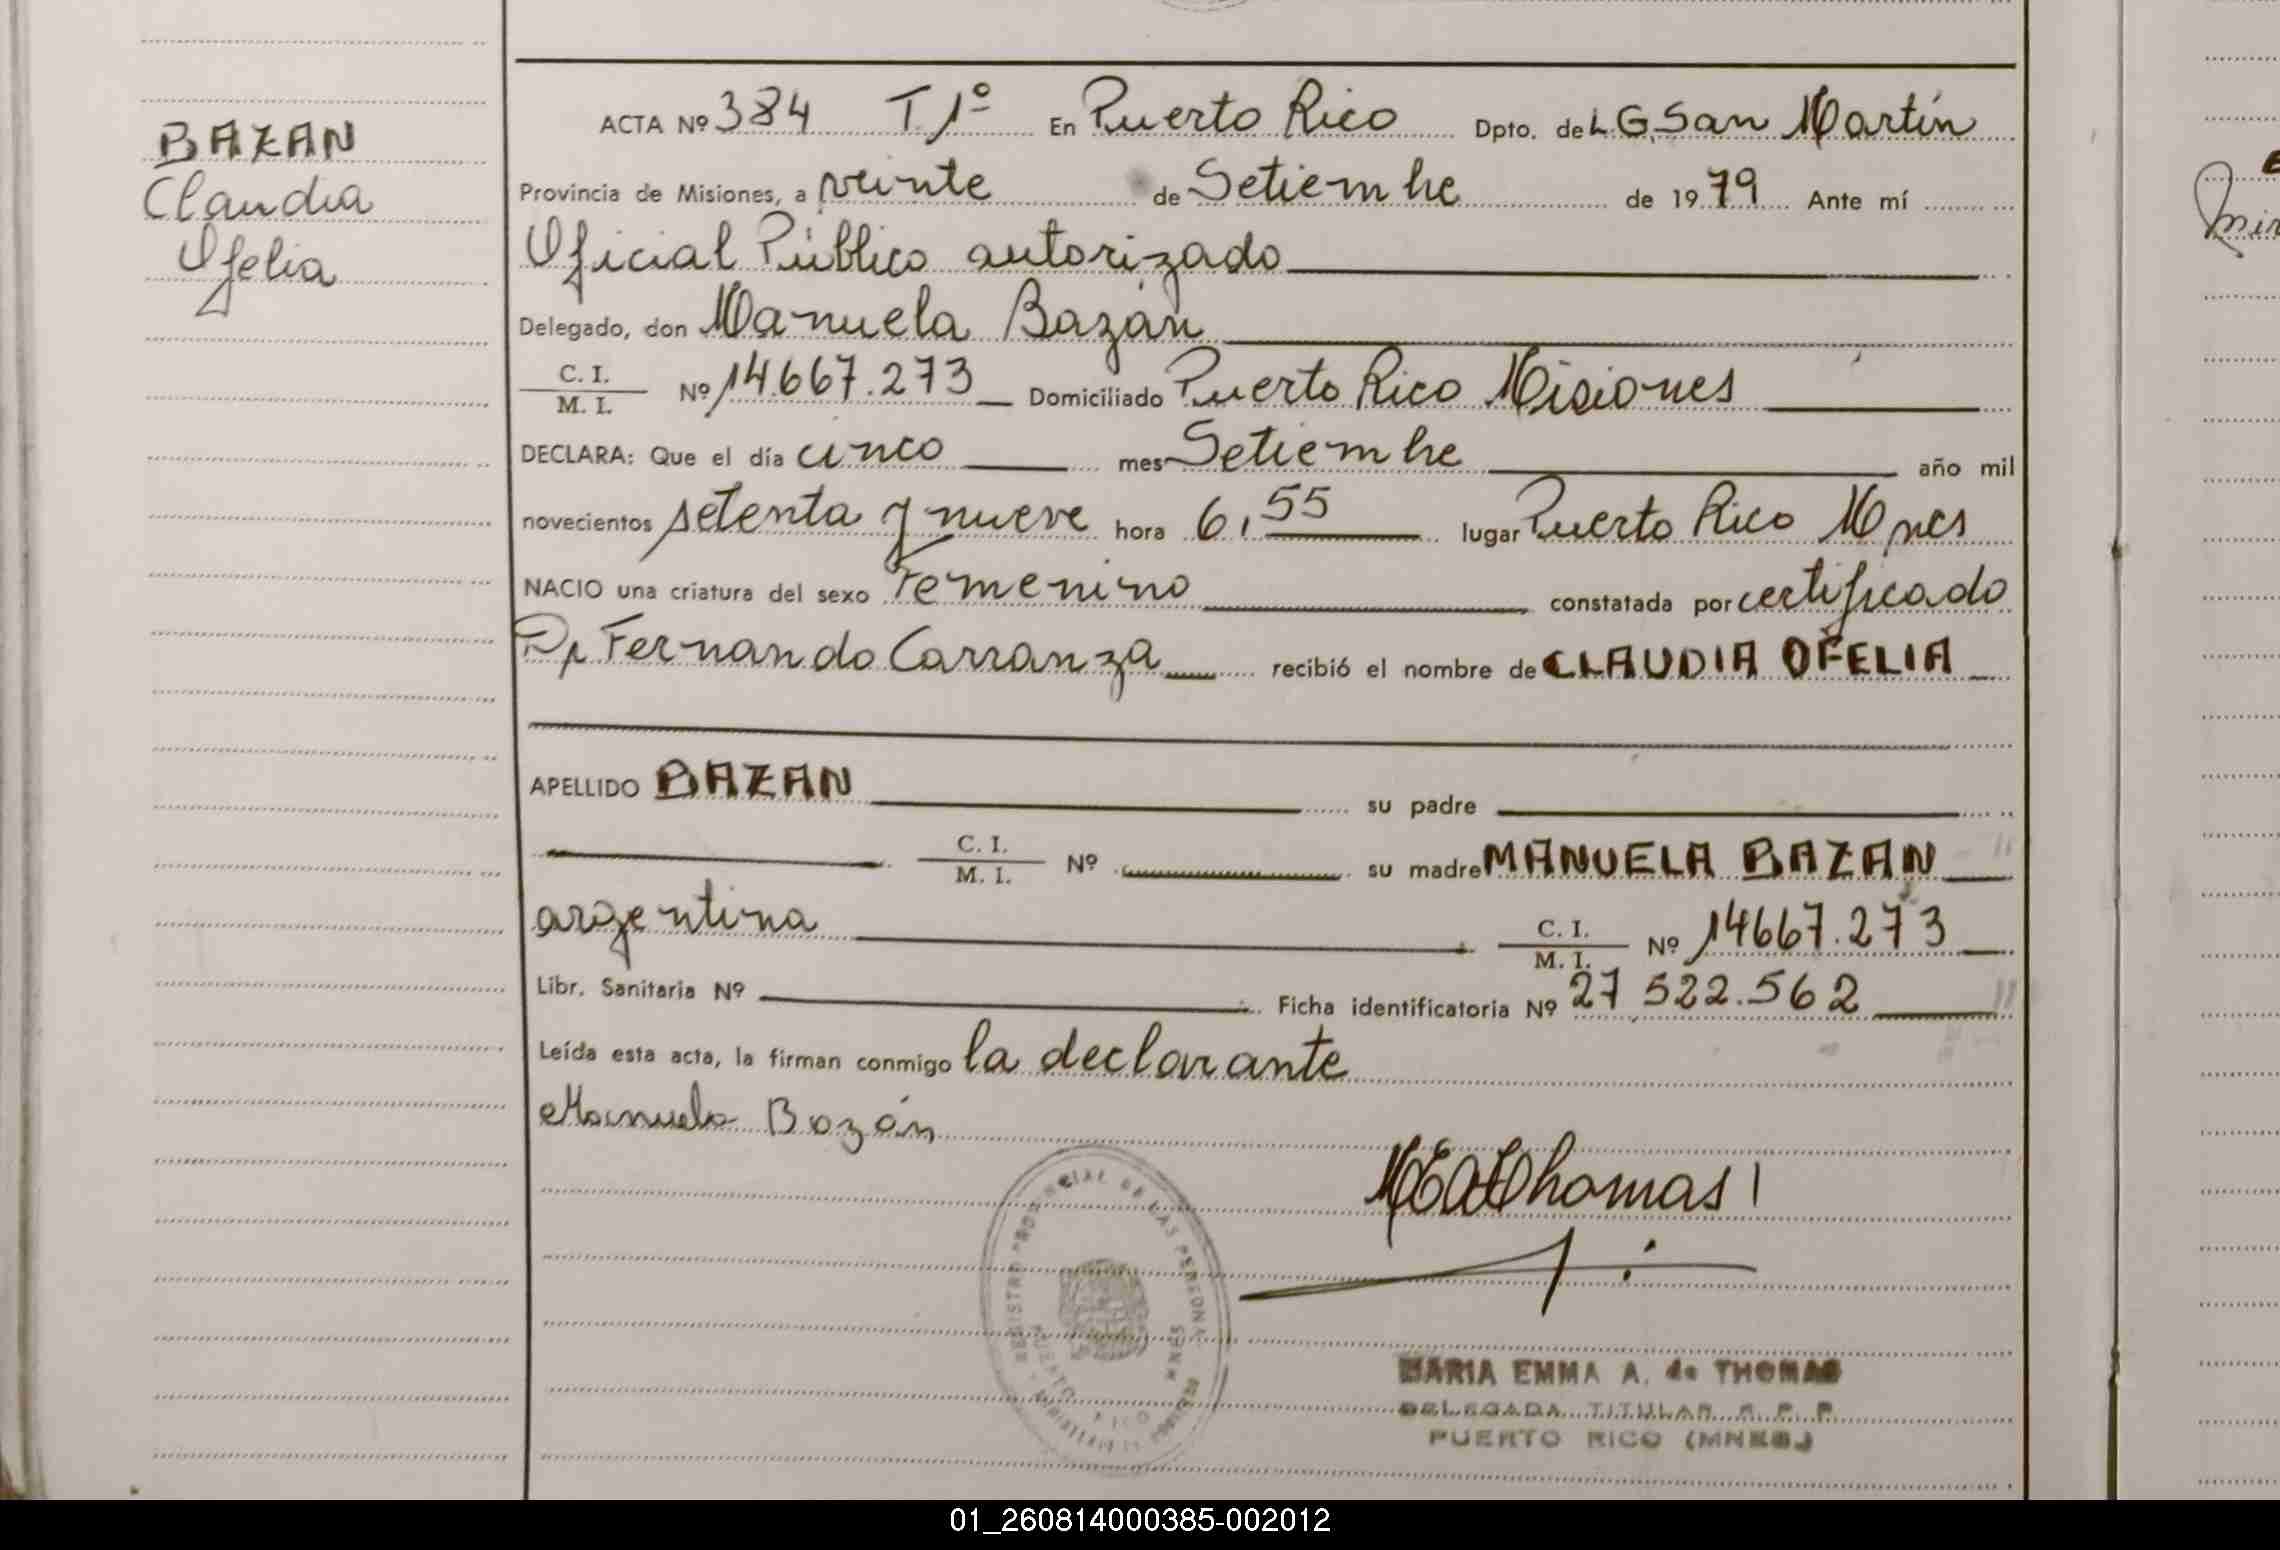 BAZAN
Claudia
Ofelia
ACTA Nº 384 T 1º En Puerto Rico Dpto. de L G San Martín
Provincia de Misiones, a veinte de Setiembre de 1979 Ante mí
Oficial Público autorizado
Delegado, don Manuela Bazán
C. I.
M. I. Nº 14.667.273 Domiciliado Puerto Rico Misiones
DECLARA: Que el día cinco mes Setiembre año mil
novecientos setenta y nueve hora 6,55 lugar Puerto Rico Mnes
NACIO una criatura del sexo Femenino constatada por certificado
Dr Fernando Carranza recibió el nombre de CLAUDIA OFELIA
APELLIDO BAZAN su padre
C. I.
M. I. Nº su madre MANUELA BAZAN
argentina C. I.
M. I. Nº 14667.273
Libr. Sanitaria Nº Ficha identificatoria Nº 27.522.562
Leída esta acta, la firman conmigo la declarante
Manuela Bazán
MEAdeThomas
REGISTRO PROVINCIAL DE LAS PERSONAS
PUERTO RICO
MARIA EMMA A. de THOMAS
DELEGADA TITULAR R. P. P.
PUERTO RICO (MNES.)
01_260814000385-002012